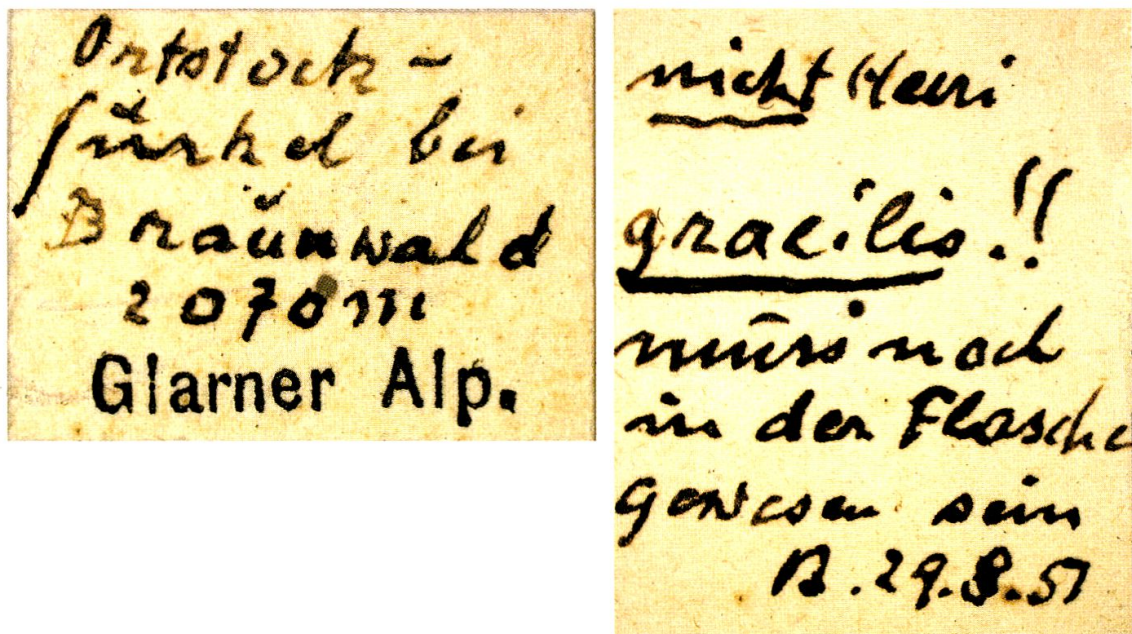 Ortstock-
fürkel bei
Braunwald
2070 m
Glarner Alp.
nicht Heeri
gracilis.!!
muss noch
in der Flasche
gewesen sein
B. 29.8.51